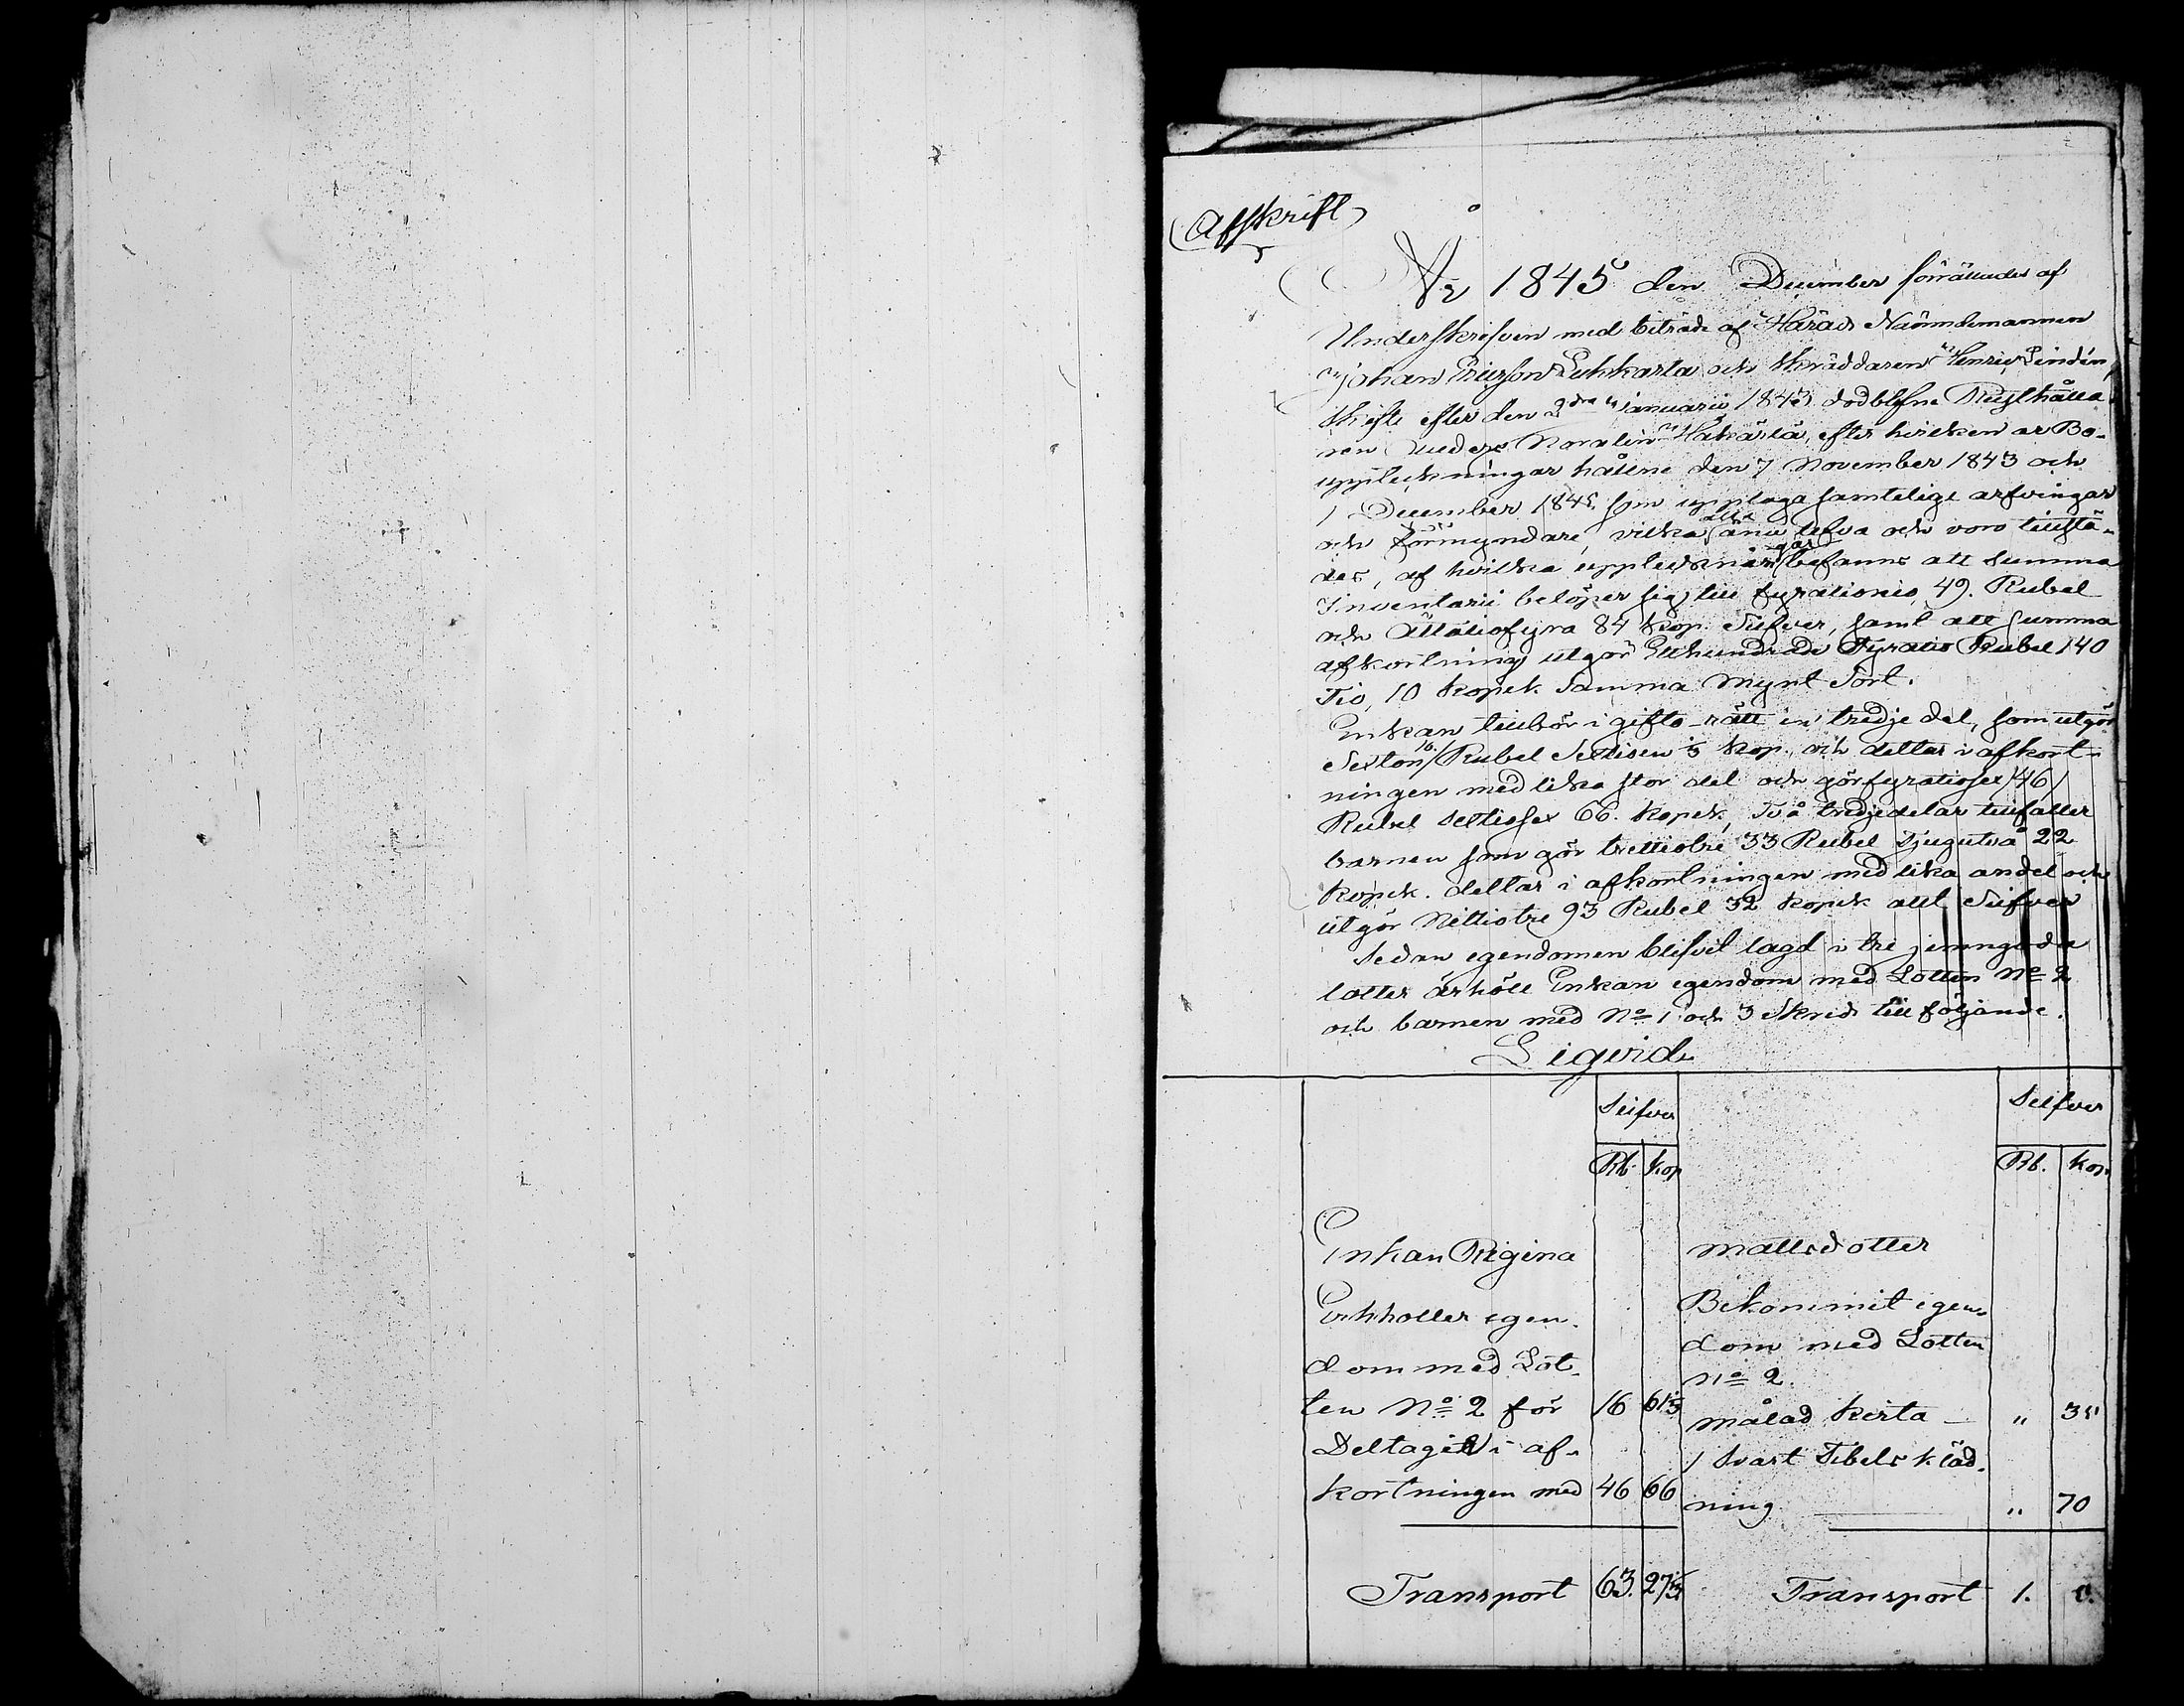 Afskrift
År 1845 den December förrättades af
Underskrifven med biträde af Härads Nämndemannen
Johan Ericson Eukkarla och skräddaren Henric Lindén,
skifte efter den 2dra januarii 1843 dödblifne Rusthålla-
ren Noralin Hakärlä, efter hvilken ar Bo-
uppteckningar hållne den 7 November 1843 och
1 December 1845 som upptaga samtelige arfvingar
och förmyndare, vilka alla änu lefva och voro tillstä-
des, af hvilka uppteckningar befanns att summa
Inventarii belöper sig till fyrationio 49. Rubel
och Åttatiofyra 84 kop. Silfver, samt att summa
afkortning utgör Etthundrade Fyratio Rubel 140
Tio, 10 kopek samma mynt Sort.
Enkan tillhör i gifto-rätt en tredje del, som utgör
Sexton /16/ Rubel Sextioen ⅓ kop. och deltar i afkort-
ningen med lika stor del och gör fyratiosex /46/
Rubel sextiosex 66. kopek, Två tredjedelar tillfaller
barnen som gör trettiotre 33 Rubel Tjugutvå 22
kopek. deltar i afkortningen med lika andel och
utgör Nittiotre 93 Rubel 32 kopek allt Silfver
Sedan egendomen blifvit lagd i tre jemngoda
lotter ärhöll Enkan egendom med Lotten No 2
och barnen med No 1 och 3 Skrids till följande.
Liqvid
Silfver Silfver
Rb. kop Rb. kop
Enkan Regina Mattsdotter
Erhåller egen- Bekommit egen-
dom med Lot- dom med Lotten
ten No 2 för 16 61⅓ No 2.
målad kista — " 35
Deltagit i af- 1 Svart Tibets kläd-
kortningen med 46 66 ning " 70
Transport 63. 27⅓ Transport 1. 5.